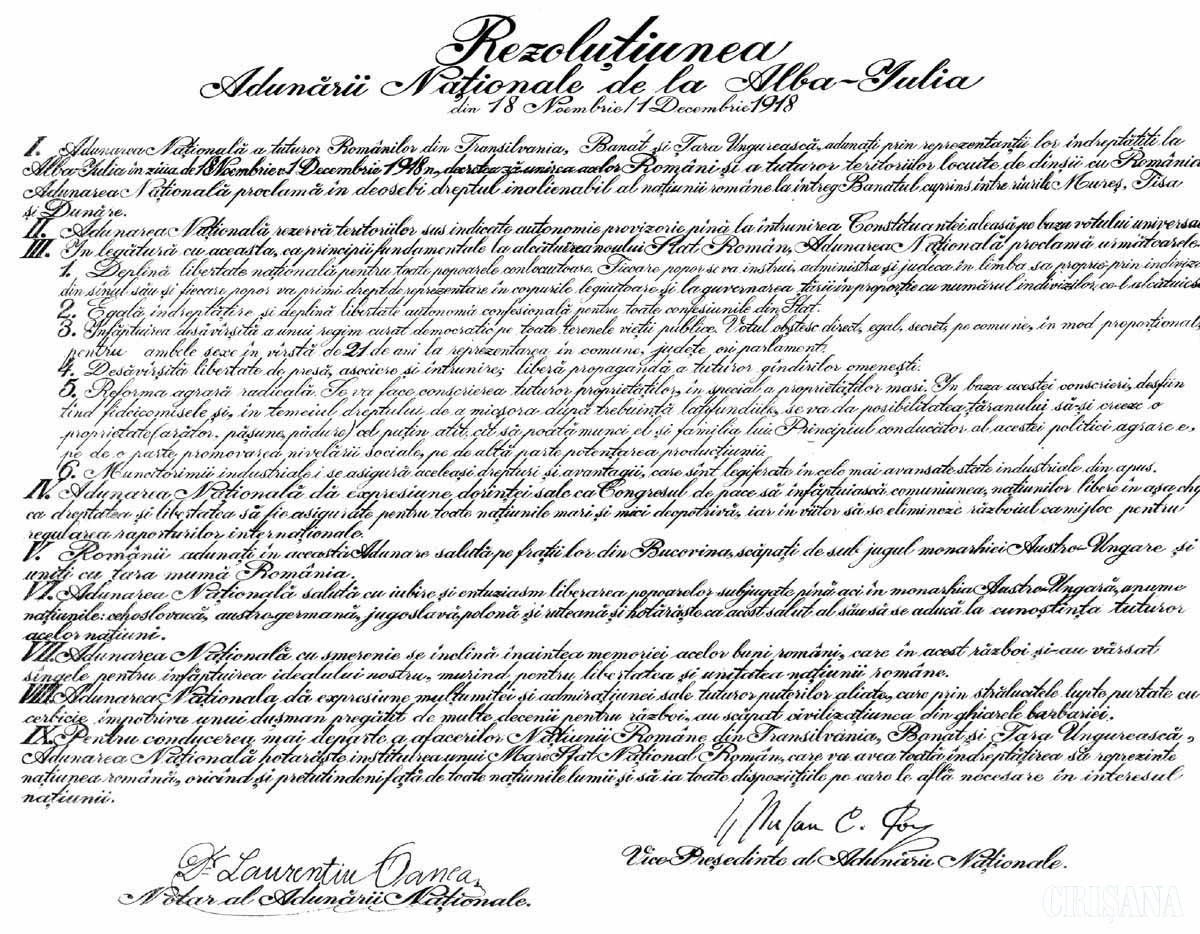 Rezoluțiunea
Adunării Naționale de la Alba-Iulia
din 18 Noembrie/1 Decembrie 1918
I. Adunarea Națională a tuturor Românilor din Transilvania, Banat și Țara Ungurească, adunați prin reprezentanții lor îndreptățiți la
Alba-Iulia în ziua de 18 Noembrie 1 Decembrie 1918 n., decretează unirea acelor Români și a tuturor teritoriilor locuite de dînșii cu România
Adunarea Națională proclamă în deosebi dreptul inalienabil al națiunii române la întreg Banatul cuprins între rîurile Mureș, Tisa
și Dunăre.
II. Adunarea Națională rezervă teritoriilor sus indicate autonomie provizorie pînă la întrunirea Constituantei aleasă pe baza votului universa
III. In legătură cu aceasta, ca principii fundamentale la alcătuirea noului Stat Român, Adunarea Națională proclamă următoarele
1. Deplină libertate națională pentru toate popoarele conlocuitoare. Fiecare popor se va instrui, administra și judeca în limba sa proprie prin indivize
din sînul său și fiecare popor va primi drept de reprezentare în corpurile legiuitoare și la guvernarea țării în proporție cu numărul indivizilor, ce-l alcătuiesc
2. Egală îndreptățire și deplină libertate autonomă confesională pentru toate confesiunile din Stat.
3. Înfăptuirea desăvîrșită a unui regim curat democratic pe toate terenele vieții publice. Votul obștesc direct, egal, secret, pe comune, în mod proporțional
pentru ambele sexe în vîrstă de 21 de ani la reprezentarea în comune, județe ori parlament.
4. Desăvîrșită libertate de presă, asociere și întrunire; liberă propagandă a tuturor gîndirilor omenești.
5. Reforma agrară radicală. Se va face conscrierea tuturor proprietăților, în special a proprietăților mari. In baza acestei conscrieri, desfiin
țînd fideicomisele și, în temeiul dreptului de a micșora după trebuință latifundiile, se va da posibilitatea țăranului să-și creeze o
proprietate (arător, pășune, pădure) cel puțin atît cît să poată munci el și familia lui. Principiul conducător al acestei politici agrare e,
pe de o parte promovarea nivelării sociale, pe de altă parte potențarea producțiunii
6. Muncitorimii industriale i se asigură aceleași drepturi și avantagii, care sînt legiferate în cele mai avansate state industriale din apus.
IV. Adunarea Națională dă expresiune dorinței sale ca Congresul de pace să înfăptuiască comuniunea națiunilor libere în așa chip
ca dreptatea și libertatea să fie asigurate pentru toate națiunile mari și mici deopotrivă, iar în viitor să se elimineze războiul ca mijloc pentru
regularea raporturilor internaționale.
V. Românii adunați în această Adunare salută pe frații lor din Bucovina, scăpați de sub jugul monarhiei Austro-Ungare și
uniți cu țara mumă România.
VI. Adunarea Națională salută cu iubire și entuziasm liberarea popoarelor subjugate pînă aci în monarhia Austro-Ungară, anume
națiunile: cehoslovacă, austro-germană, jugoslavă, polonă și ruteană și hotărăște ca acest salut al său să se aducă la cunoștința tuturor
acelor națiuni.
VII. Adunarea Națională cu smerenie se înclină înaintea memoriei acelor buni români, care în acest război și-au vărsat
sîngele pentru înfăptuirea idealului nostru, murind pentru libertatea și unitatea națiunii române.
VIII. Adunarea Națională dă expresiune mulțumitei și admirațiunei sale tuturor puterilor aliate, care prin strălucitele lupte purtate cu
cerbicie împotriva unui dușman pregătit de multe decenii pentru război, au scăpat civilizațiunea din ghiarele barbariei.
IX. Pentru conducerea mai departe a afacerilor Națiunii Române din Transilvania, Banat și Țara Ungurească,
Adunarea Națională hotărăște instituirea unui Mare Sfat Național Român, care va avea toată îndreptățirea să reprezinte
națiunea română, oricînd și pretutindeni față de toate națiunile lumii și să ia toate dispozițiile pe care le află necesare în interesul
națiunii.
Vice Președinte al Adunării Naționale.
Dr. Laurențiu Oanea
Notar al Adunării Naționale.
CRIȘANA